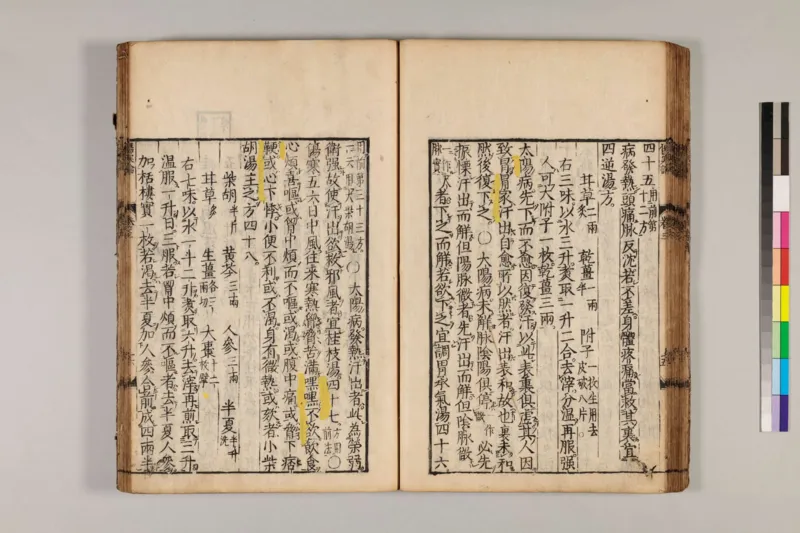 四十五用前第十二方
病發熱頭痛脉反沈若不差身體疼痛當救其裏宜
四逆湯方
甘草二兩炙 乾薑一兩半 附子一枚生用去皮破八片
右三味以水三升煮取一升二合去滓分温再服强
人可大附子一枚乾薑三兩
太陽病先下而不愈因復發汗以此表裏俱虚其人因
致冒冒家汗出自愈所以然者汗出表和故也裏未和
然後復下之 ○太陽病未解脉陰陽俱停一作微必先
振慄汗出而解但陽脉微者先汗出而解但陰脉微
一作尺脉實者下之而解若欲下之宜調胃承氣湯四十六
用前第三十三方一云用大柴胡湯 ○太陽病發熱汗出者此為榮弱
衛强故使汗出欲救邪風者宜桂枝湯四十七方用前法○
傷寒五六日中風往来寒熱胸脇苦滿嘿嘿不欲飲食
心煩喜嘔或胸中煩而不嘔或渴或腹中痛或脇下痞
鞕或心下悸小便不利或不渴身有微熱或欬者小柴
胡湯主之方四十八
柴胡半斤 黄芩三兩 人参三兩 半夏半升洗
甘草炙 生薑各三兩切 大棗十二枚擘
右七味以水一斗二升煮取六升去滓再煎取三升
温服一升日三服若胸中煩而不嘔者去半夏人参
加栝樓實一枚若渴去半夏加人参合前成四兩半